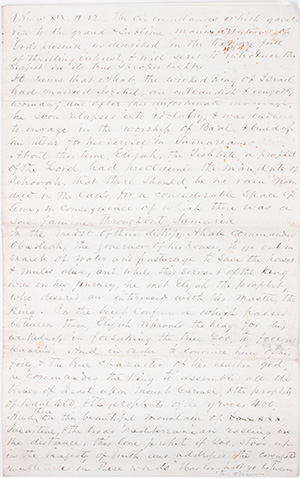 1 Kings XIX. 11.12 - The circumstances which gave
rise to the grand & sublime manifestation of
God's presence, as described in the text, is full
of thrilling interest, & will serve to introduce the
subject in its true & proper light.
It seems that Ahab, the wicked King of Israel
had married Jezebel, an outlandish & ungodly
woman, and after this unfortunate marriage,
he soon relapsed into idolatry, & was enticed
to engage in the worship of Baal, & fixed up
an altar for his service in Samaria.
About this time Elijah, the Tishbite, a prophet
of the Lord, had proclaimed the mandate of
Jehovah, that there should be no rain nor
dew in the land, for a considerable space of
time, in consequence of which there was a
famine throughout Samaria
In the midst of their distress, Ahab commanded
Obadiah, the governor of his house, to go out in
search of water and pasturage to save the horses
& mules alive, and while this servant of the King
was on his journey, he met Elijah the prophet,
who desires an interview with his master the
King. In the brief conference which passed
between them Elijah reproves the king for his
wickedness in forsaking the true God, to follow
Baalim. And in order to convince him of his
folly & the true character of his heathen god,
he commands the King to assemble all the
tribes of Israel upon Mount Carmel & the prophets
of Baal 450 & the prophets of the groves 400.
And, on the beautiful mountain of
Palestine, & the broad Mediterranean rolling in
the distance, this lone prophet of God, stood up
in the majesty of truth and addressed the
multitude in these words "How long halt ye between